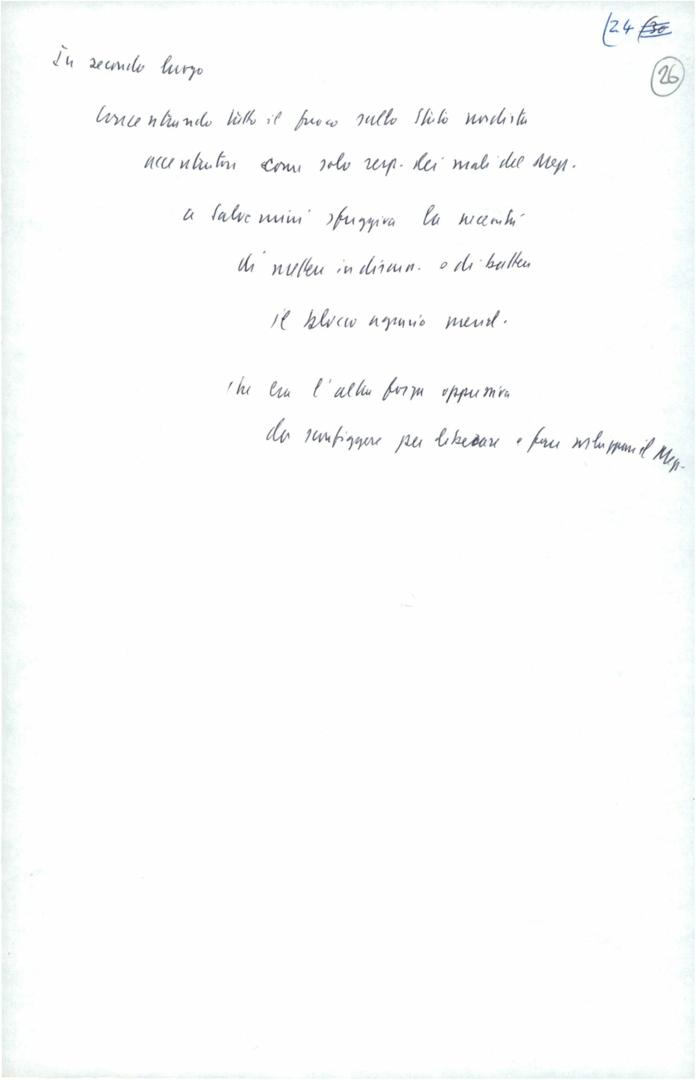 (24 (30
26
In secondo luogo
concentrando tutto il fuoco sullo Stato nordista
accentratore come solo resp. dei mali del Mezz.
a Salvemini sfuggiva la necessità
di mettere in discuss. e di battere
il blocco agrario merid.
che era l'altra forza oppressiva
da sconfiggere per liberare e fare sviluppare il Mezz.